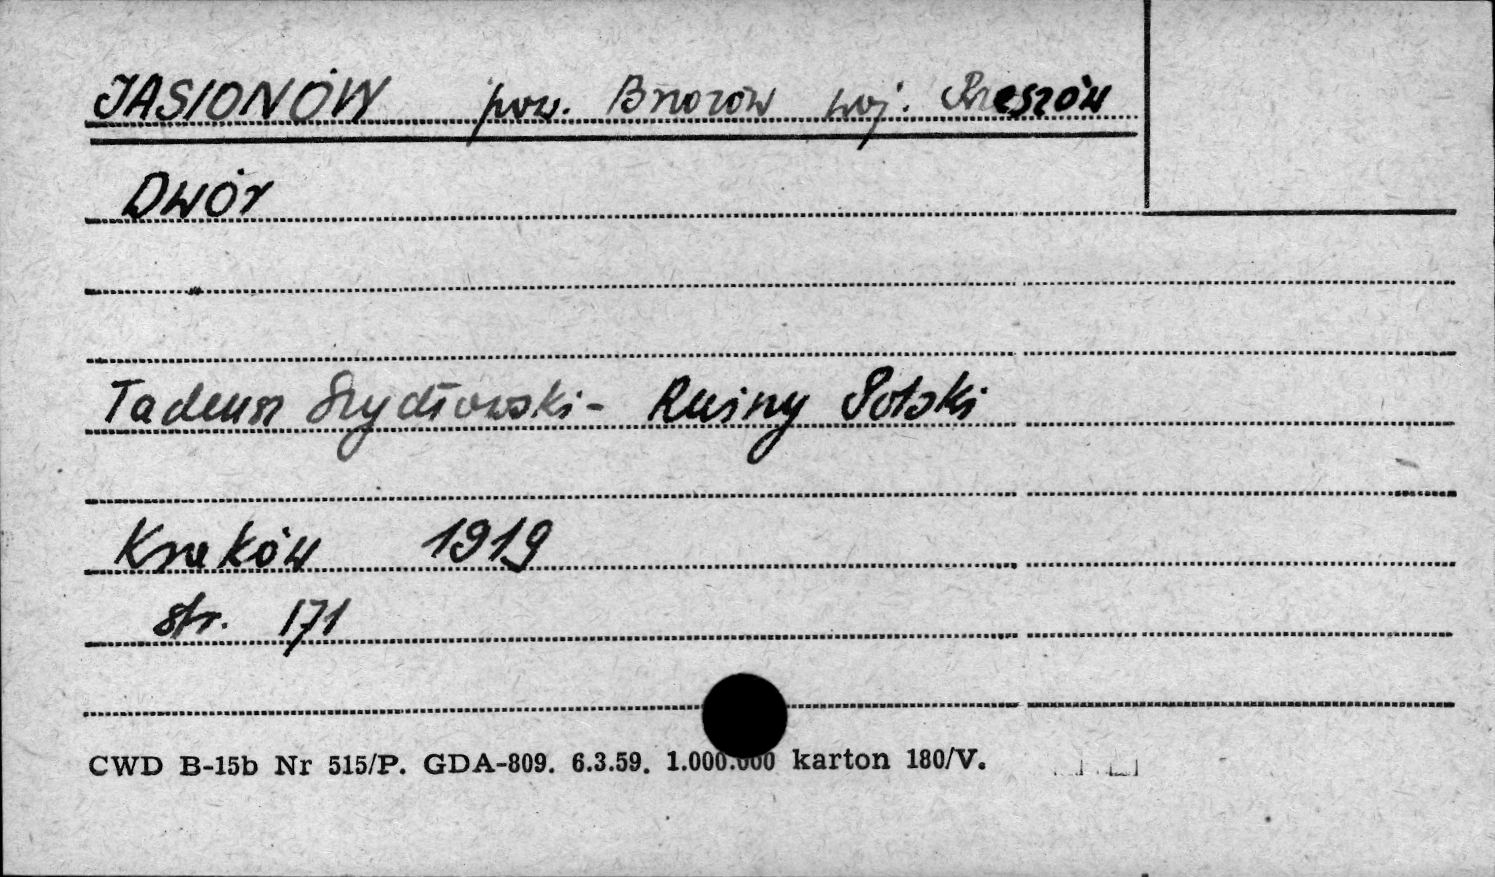 JASIONÓW pow. Brzozów woj. Rzeszów
Dwór
Tadeusz Szydłowski - Ruiny Polski
Kraków 1919
str. 171
CWD B-15b Nr 515/P. GDA-809. 6.3.59. 1.000.000 karton 180/V.